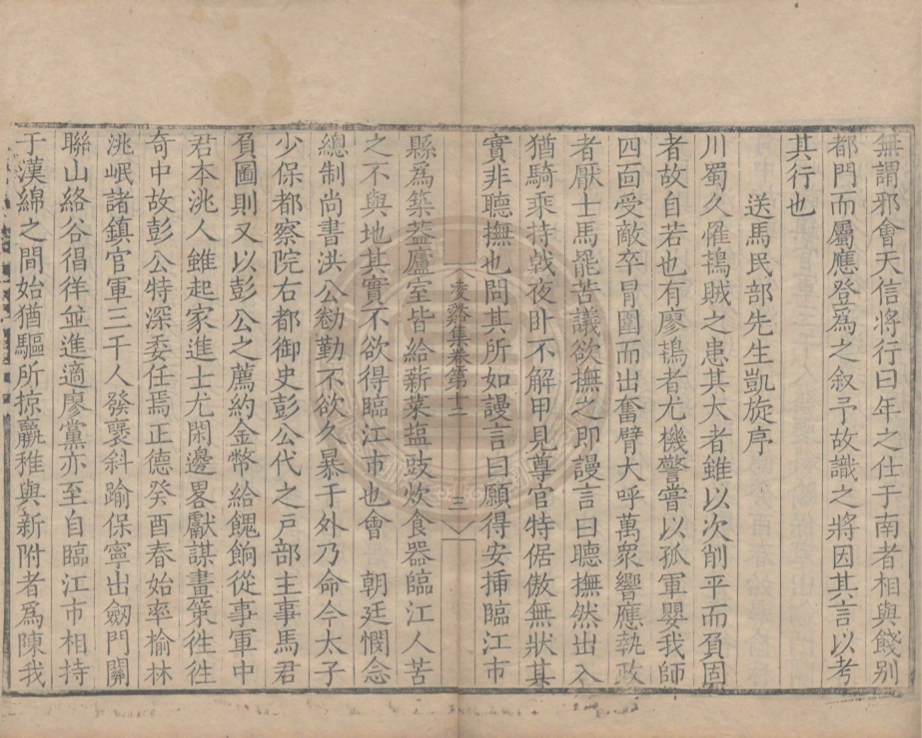 無謂邪會天信將行曰年之仕于南者相與餞別
都門而屬應登爲之叙予故識之將因其言以考
其行也
送馬民部先生凱旋序
川蜀久罹鴰賊之患其大者雖以次削平而負固
者故自若也有廖鴰者尤機警嘗以孤軍嬰我師
四面受敵卒冒圍而出奮臂大呼萬衆響應執政
者厭士馬罷苦議欲撫之即謾言曰聽撫然出入
猶騎乘持戟夜卧不解甲見尊官特倨傲無狀其
實非聽撫也問其所如謾言曰願得安揷臨江市
凌谿集卷第十二
三
縣爲築葢廬室皆給薪菜盐豉炊食器臨江人苦
之不與地其實不欲得臨江市也會 朝廷憫念
總制尚書洪公勑勤不欲久暴于外乃命今太子
少保都察院右都御史彭公代之戶部主事馬君
負圖則又以彭公之薦約金幣給餽餉從事軍中
君本洮人雖起家進士尤閑邊畧獻謀畫策徃徃
奇中故彭公特深委任焉正德癸酉春始率榆林
洮岷諸鎮官軍三千人發襃斜踰保寧出劒門關
聯山絡谷徜徉並進適廖黨亦至自臨江市相持
于漢綿之間始猶驅所掠羸稚與新附者爲陳我